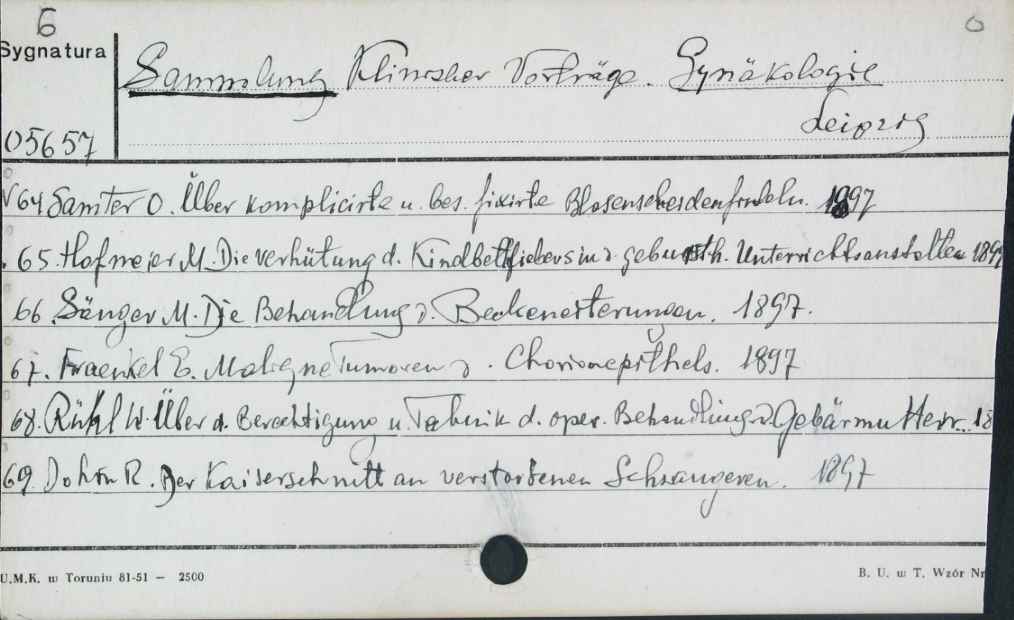 6
Sygnatura
Sammlung Klinischer Vorträge. Gynäkologie
Leipzig
05657
V 64 Samter O. Über komplicirte u. bes. fixirte Blasenscheidenfisteln. 1897
65. Hofmeier M. Die Verhütung d. Kindbettfiebers in d. geburtsh. Unterrichtsanstalten 1897
66. Sänger M. Die Behandlung d. Beckeneiterungen. 1897.
67. Fraenkel E. Maligne Tumoren d. Chorionepithels. 1897
68. Rühl W. Über d. Berechtigung u. Technik d. oper. Behandlung d. Gebärmutter. 18
69. Dohrn R. Der Kaiserschnitt an verstorbenen Schwangeren. 1897
U.M.K. w Toruniu 81-51 — 2500
B. U. w T. Wzór Nr